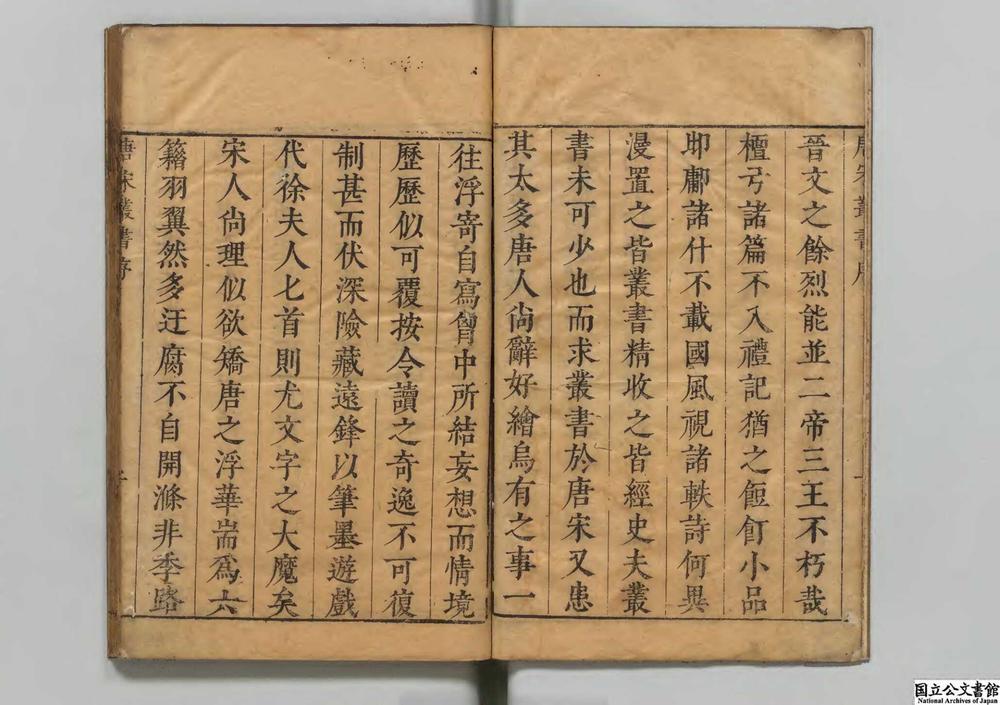 晉文之餘烈能並二帝三王不朽哉
檀弓諸篇不入禮記猶之飣小品
即鄘諸什不載國風視諸軼詩何異
漫置之皆叢書精收之皆經史夫叢
書未可少也而求叢書於唐宋又患
其太多唐人尚辭好繪烏有之事一
往浮寄自寫曾中所結妄想而情境
歷歷似可覆按令讀之奇逸不可復
制甚而伏深險藏遠鋒以筆墨遊戲
代徐夫人匕首則尤文字之大魔矣
宋人尚理似欲矯唐之浮華耑為六
籍羽翼然多迂腐不自開滌非季路
唐宋叢書序
国立公文書館
National Archives of Japan